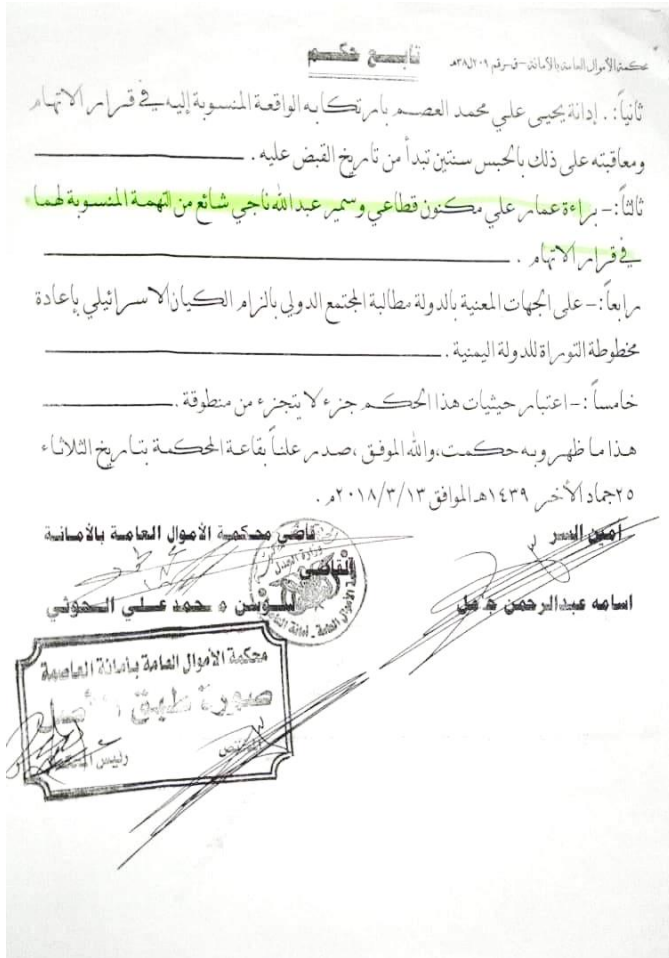 محكمة الأموال العامة بالأمانة - ق رقم ٢٠٩ ل ٣٨هـ
تابع حكم
ثانياً: . إدانة يحيى علي محمد العصم بارتكابه الواقعة المنسوبة إليه في قرار الاتهام
ومعاقبته على ذلك بالحبس سنتين تبدأ من تاريخ القبض عليه .
ثالثاً:- براءة عمار علي مكنون قطاعي وسمير عبدالله ناجي شائع من التهمة المنسوبة لهما
في قرار الاتهام .
رابعاً:- على الجهات المعنية بالدولة مطالبة المجتمع الدولي بالزام الكيان الاسرائيلي بإعادة
مخطوطة التوراة للدولة اليمنية .
خامساً :- اعتبار حيثيات هذا الحكم جزء لا يتجزء من منطوقة .
هذا ما ظهر وبه حكمت، والله الموفق ، صدر علناً بقاعة المحكمة بتاريخ الثلاثاء
٢٥ جماد الأخر ١٤٣٩هـ الموافق ٢٠١٨/٣/١٣م .
أمين السر
قاضي محكمة الأموال العامة بالأمانة
القاضي
اسامه عبدالرحمن
محمد علي الحوثي
وزارة العدل
محكمة الأموال العامة بأمانة العاصمة
صورة طبق الأصل
المختص
رئيس